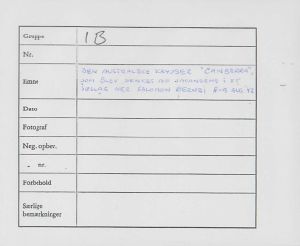 Gruppe 1B
Nr.
Emne DEN AUSTRALSKE KRYDSER "CANBERRA",
SOM BLEV SENKET AF JAPANERNE I ET
SLAG VED SALOMON ØERNE 8-9 AUG 42
Dato
Fotograf
Neg. opbev.
- nr.
Forbehold
Særlige
bemærkninger